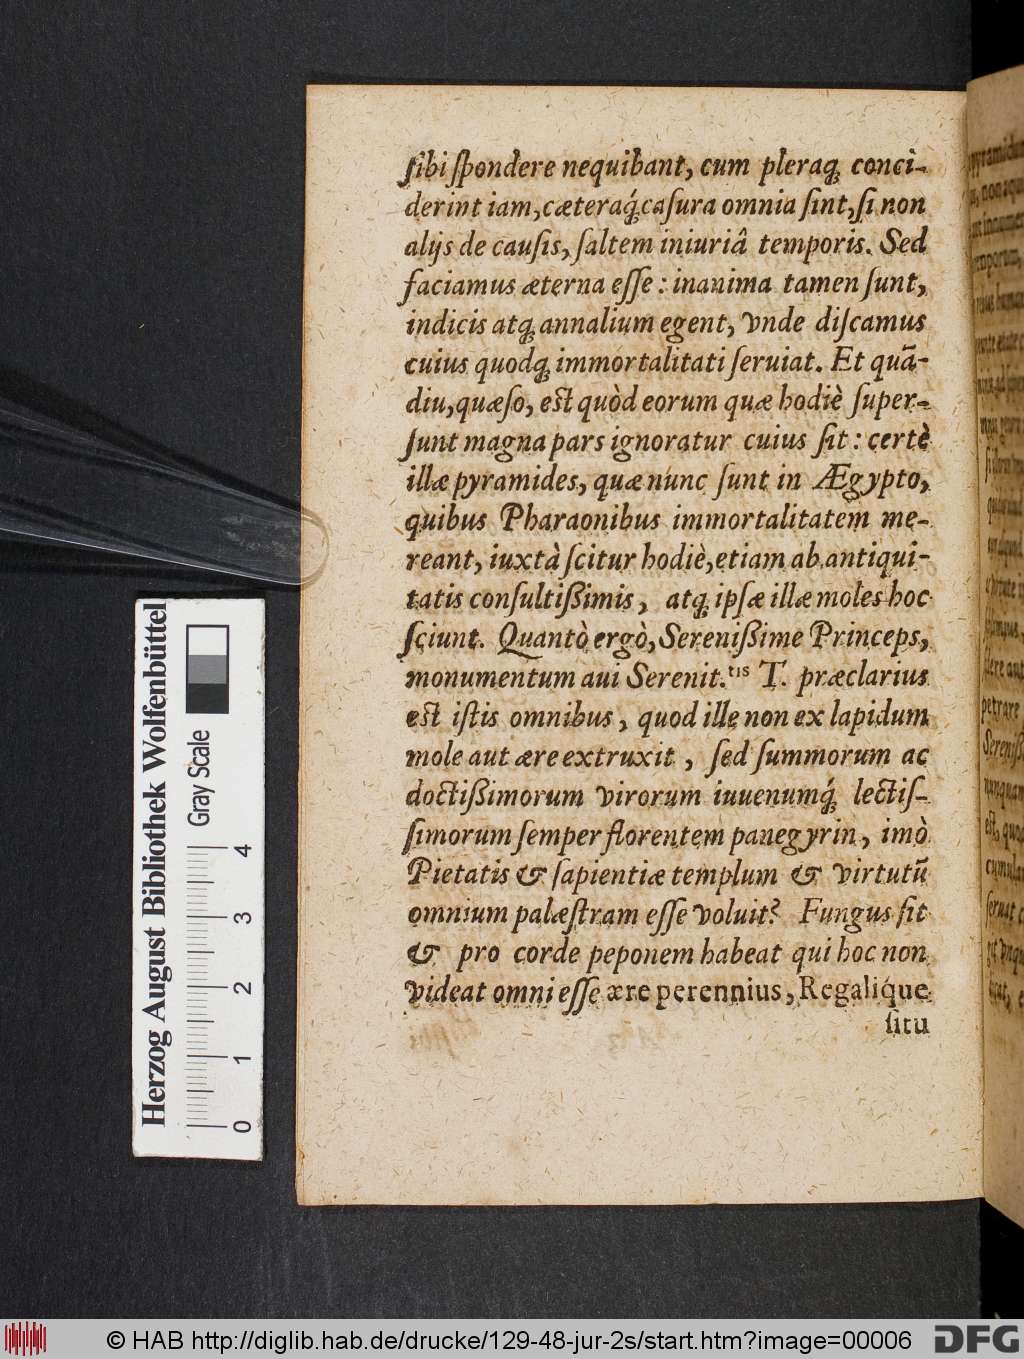 ſibi ſpondere nequibant, cum pleraq́; conci-
derint iam, cæteraq́; caſura omnia ſint, ſi non
alijs de cauſis, ſaltem iniuriâ temporis. Sed
faciamus æterna eſſe: inanima tamen ſunt,
indicis atq; annalium egent, vnde diſcamus
cuius quodq; immortalitati ſeruiat. Et quã-
diu, quæſo, est quòd eorum quæ hodiè ſuper-
ſunt magna pars ignoratur cuius ſit: certè
illæ pyramides, quæ nunc ſunt in Ægypto,
quibus Pharaonibus immortalitatem me-
reant, iuxtà ſcitur hodiè, etiam ab antiqui-
tatis conſultißimis, atq; ipſæ illæ moles hoc
ſciunt. Quantò ergò, Serenißime Princeps,
monumentum aui Serenit.tis T. præclarius
est iſtis omnibus, quod ille non ex lapidum
mole aut ære extruxit, ſed ſummorum ac
doctißimorum virorum iuuenumq́; lectiſ-
ſimorum ſemper florentem panegyrin, imò
Pietatis & ſapientiæ templum & virtutũ
omnium palæſtram eſſe voluit? Fungus ſit
& pro corde peponem habeat qui hoc non
videat omni eſſe ære perennius, Regalique
ſitu
Herzog August Bibliothek Wolfenbüttel
Gray Scale
0 1 2 3 4
© HAB http://diglib.hab.de/drucke/129-48-jur-2s/start.htm?image=00006
DFG